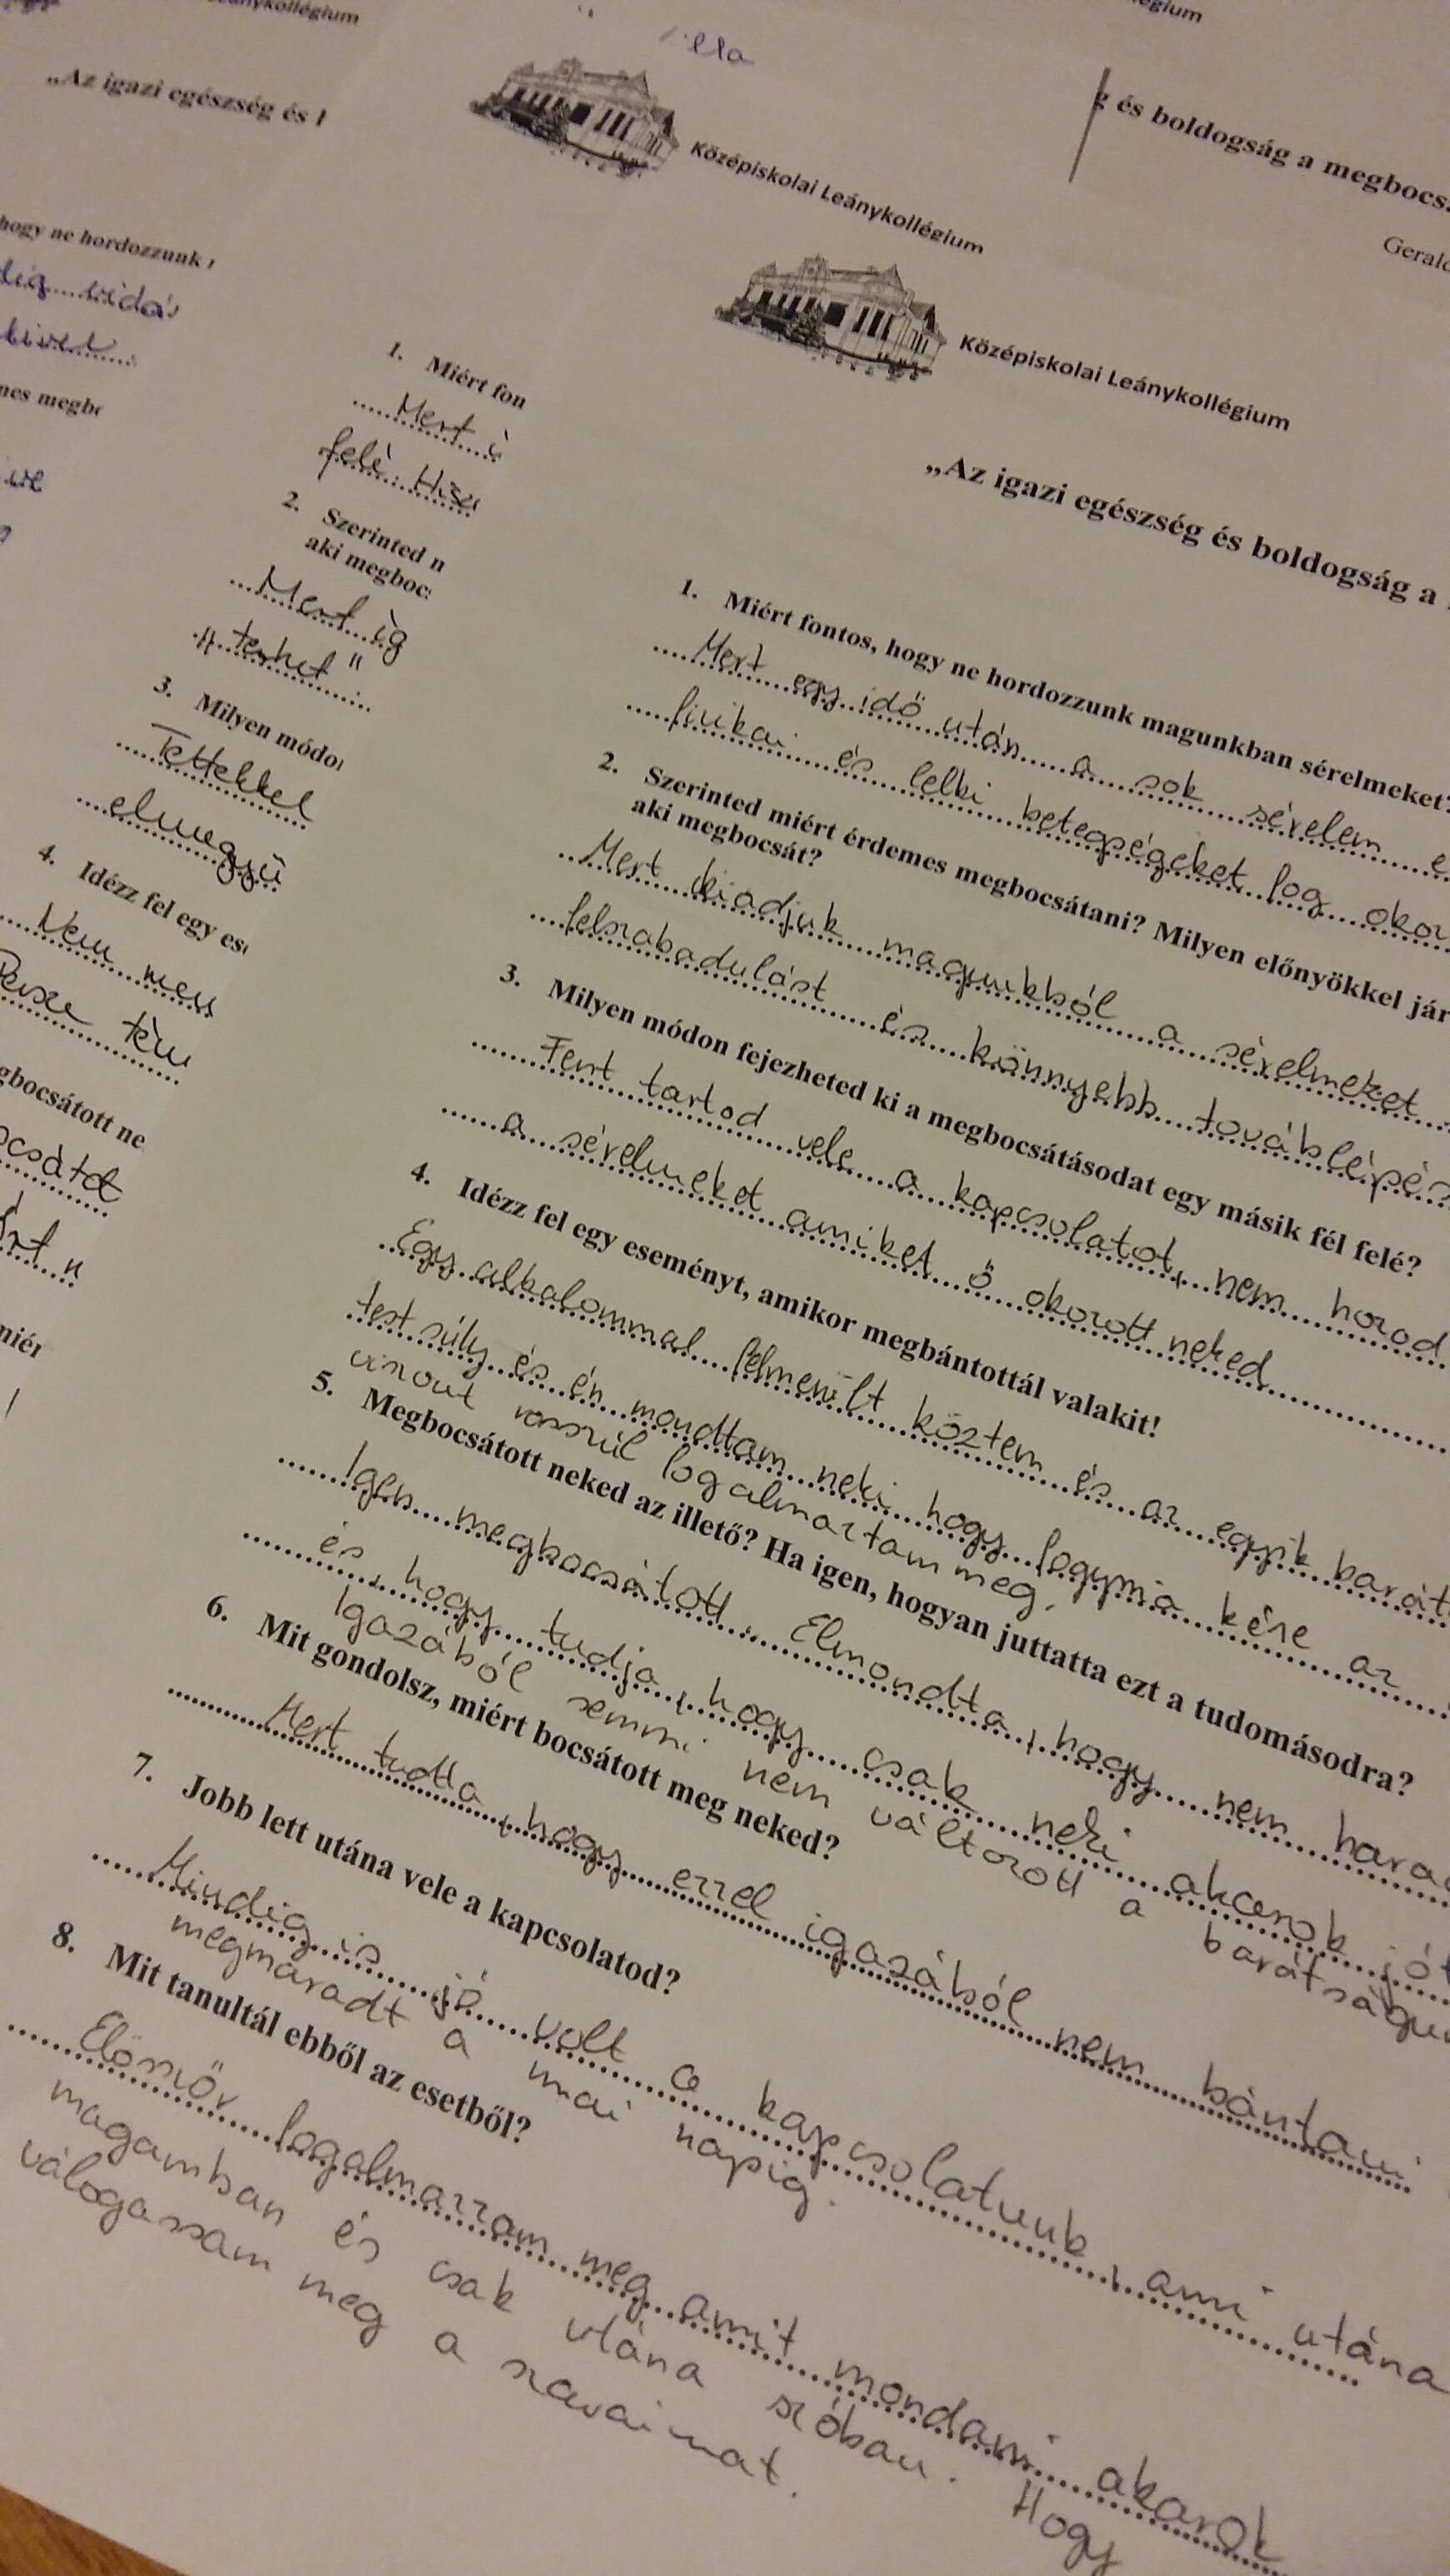 „Az igazi egészség és
hogy ne hordozzunk
Középiskolai Leánykollégium
1. Miért fon
Mert
felé.
2. Szerinted
aki megbocs
Mert ig
"terhet"
3. Milyen módo
Tettekkel
4. Idézz fel egy es
Nem
Persze
gbocsátott ne
g és boldogság a megbocs
Gerald
Középiskolai Leánykollégium
„Az igazi egészség és boldogság a
1. Miért fontos, hogy ne hordozzunk magunkban sérelmeket?
Mert egy idő után a sok sérelem
fizikai és lelki betegségeket fog okoz
2. Szerinted miért érdemes megbocsátani? Milyen előnyökkel jár
aki megbocsát?
Mert kiadjuk magunkból a sérelmeket
felszabadulást és könnyebb továblépés
3. Milyen módon fejezheted ki a megbocsátásodat egy másik fél felé?
Fent tartod vele a kapcsolatot, nem horod
a sérelmeket amiket ő okozott neked
4. Idézz fel egy eseményt, amikor megbántottál valakit!
Egy alkalommal felmerült köztem és az egyik barát
testsúly és én mondtam neki hogy fogynia kéne az
viszont rosszúl fogalmaztam meg.
5. Megbocsátott neked az illető? Ha igen, hogyan juttatta ezt a tudomásodra?
Igen megbocsátott. Elmondta, hogy nem hara
és, hogy tudja, hogy csak neki akarok jót
Igazából semmi nem változott a barátságu
6. Mit gondolsz, miért bocsátott meg neked?
Mert tudta, hogy ezzel igazából nem bántani
7. Jobb lett utána vele a kapcsolatod?
Mindig is jó volt a kapcsolatunk, ami utána
megmaradt a mai napig.
8. Mit tanultál ebből az esetből?
Elöször fogalmazzam meg amit mondani akarok
magamban és csak utána szóban. Hogy
válogassam meg a szavaimat.